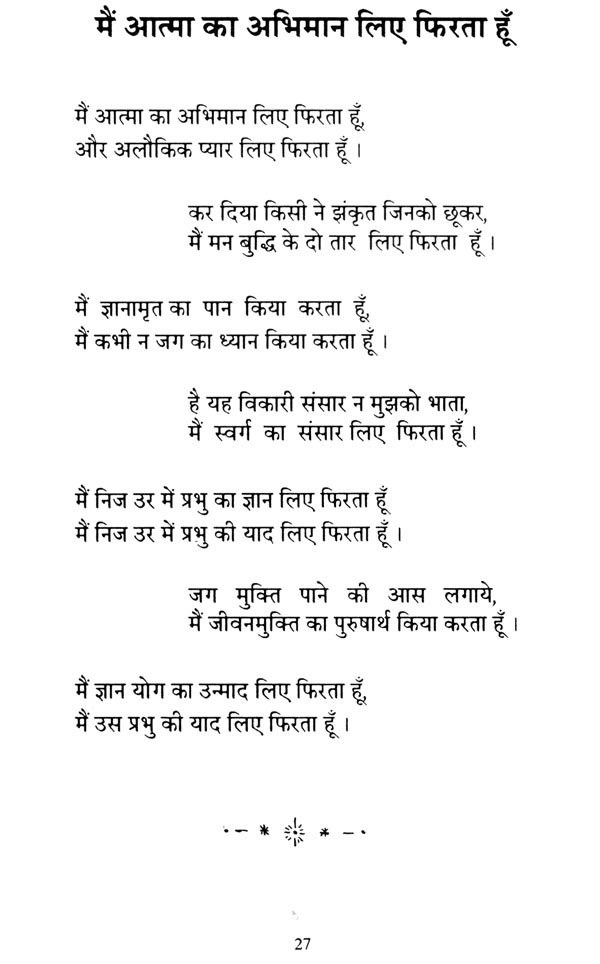 मैं आत्मा का अभिमान लिए फिरता हूँ
मैं आत्मा का अभिमान लिए फिरता हूँ,
और अलौकिक प्यार लिए फिरता हूँ ।
कर दिया किसी ने झंकृत जिनको छूकर,
मैं मन बुद्धि के दो तार लिए फिरता हूँ ।
मैं ज्ञानामृत का पान किया करता हूँ,
मैं कभी न जग का ध्यान किया करता हूँ ।
है यह विकारी संसार न मुझको भाता,
मैं स्वर्ग का संसार लिए फिरता हूँ ।
मैं निज उर में प्रभु का ज्ञान लिए फिरता हूँ
मैं निज उर में प्रभु की याद लिए फिरता हूँ ।
जग मुक्ति पाने की आस लगाये,
मैं जीवनमुक्ति का पुरुषार्थ किया करता हूँ ।
मैं ज्ञान योग का उन्माद लिए फिरता हूँ,
मैं उस प्रभु की याद लिए फिरता हूँ ।
27